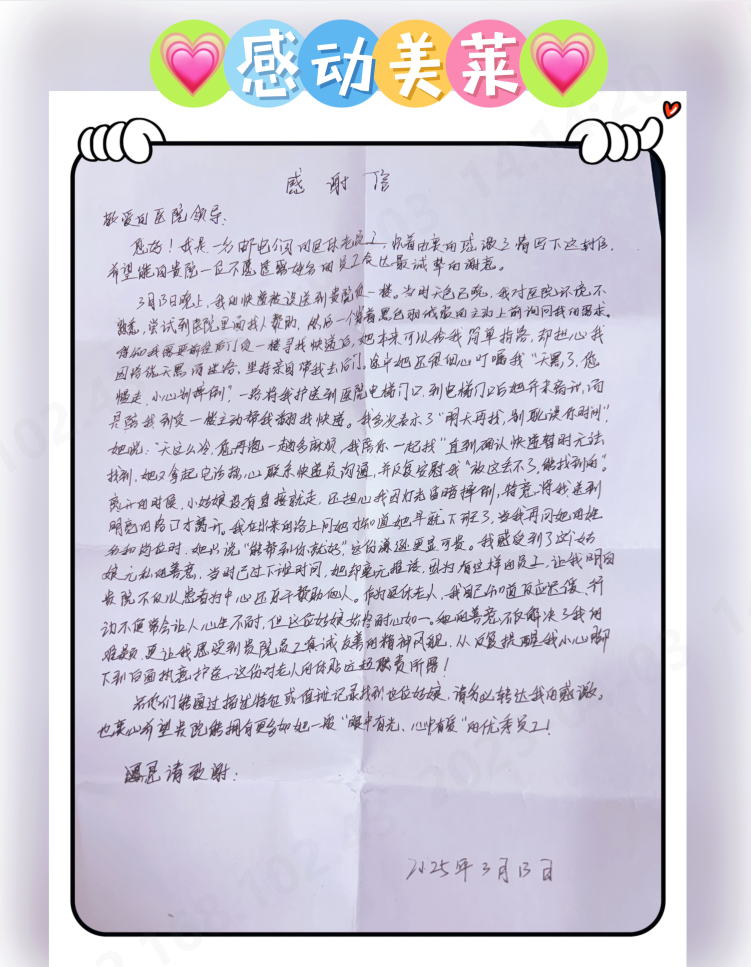 感动美莱
感谢信
敬爱的医院领导：
您好！我是一名邮电们的退休老员工，怀着由衷的感激之情写下这封信，
希望能向贵院一位不愿透露姓名的员工表达最诚挚的谢意。
3月13日晚上，我的快递被误送到贵院负一楼。当时天色已晚，我对医院环境不
熟悉，尝试到医院里面找人帮助，然后一个穿着黑色羽绒服的主动上前询问我的需求。
得知我需要前往后门负一楼寻找快递后，她本来可以给我简单指路，却担心我
因路线天黑而迷路，坚持亲自带我去后门。途中她还很细心叮嘱我“天黑了，您
慢走，小心别摔倒”，一路将我护送到医院电梯门口，到电梯门口后她并未离开，而
是陪我到负一楼主动帮我翻找快递。我多次表示了“明天再找，别耽误你时间”，
她说：“天这么冷，您再跑一趟多麻烦，我陪你一起找”直到确认快递暂时无法
找到，她又拿起电话耐心联系快递员沟通，并反复安慰我“放这丢不了，能找到的”。
离开的时候，小姑娘没有直接就走，还担心我因灯光昏暗摔倒，特意将我送到
明亮的路口才离开。我在出来的路上问她才知道她早就下班了，当我再问她的姓
名和岗位时，她只说“能帮到你就好”，这份谦逊更显可贵。我感受到了这个姑
娘无私的善意，当时已过下班时间，她却毫无推诿，因为有这样的员工，让我明白
贵院不仅以患者为中心还乐于帮助他人。作为退休老人，我自己知道反应迟缓、行
动不便常会让人心生不耐，但这位姑娘始终耐心如一。她的善意不仅解决了我的
难题，更让我感受到贵院员工真诚友善的精神风貌，从反复提醒我小心脚
下到全面执意护送，这份对老人的体贴远超职责所属！
若你们能通过描述特征或值班记录找到这位姑娘，请务必转达我的感激。
也衷心希望贵院能拥有更多如她一般“眼中有光、心中有爱”的优秀员工！
请致谢：
2025年3月13日